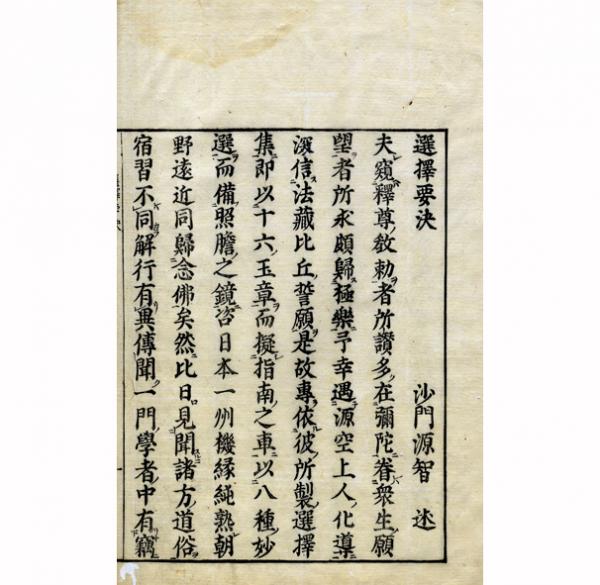 選擇要決 沙門源智 述
夫窺釋尊教勅者所讚多在彌陀眷衆生願
望者所求頗歸極樂予幸遇源空上人化導
深信法藏比丘誓願是故專依彼所製選擇
集即以十六玉章而擬指南之車以八種妙
選而備照膽之鏡咨日本一州機緣純熟朝
野遠近同歸念佛矣然比日見聞諸方道俗
宿習不同解行有異傳聞一門學者中有竊